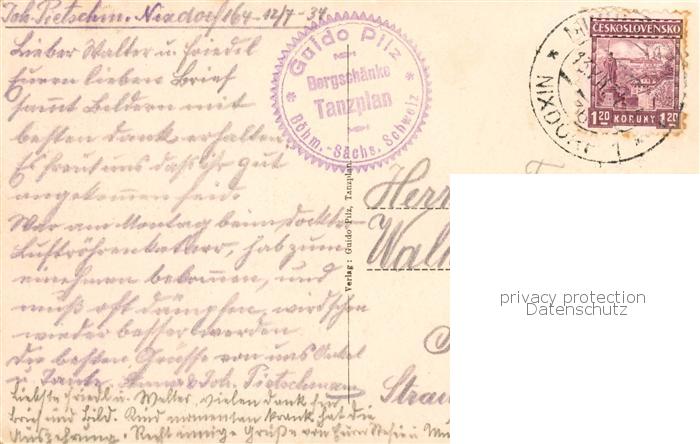 Joh. Pietschm. Nixdorf 164 12/7 - 34
Lieber Walter u. Friedl
Euren lieben Brief
samt Bildern mit
besten dank erhalten
Es freut uns daß ihr gut
angekommen seid.
War am Montag beim Dockter
Luftröhrenkatarr, hab zum
einehmen bekommen, und
muß oft dämpfen, wird schon
wieder besser werden.
Die besten Grüsse von uns Onkel
u. Tante Anna & Joh. Pietschmann
Liebste Friedl u. Walter, vielen dank für
Brief und Bild. Kind momentan krank hat die
Auszehrung. Recht innige Grüße von Eurer u.
Guido Pilz
Bergschänke
Tanzplan
Böhm.-Sächs. Schweiz
Verlag: Guido Pilz, Tanzplan.
ČESKOSLOVENSKO
1.20 KORUNY 1.20
NIXDORF 1
Herrn
Wal
Stra
privacy protection
Datenschutz